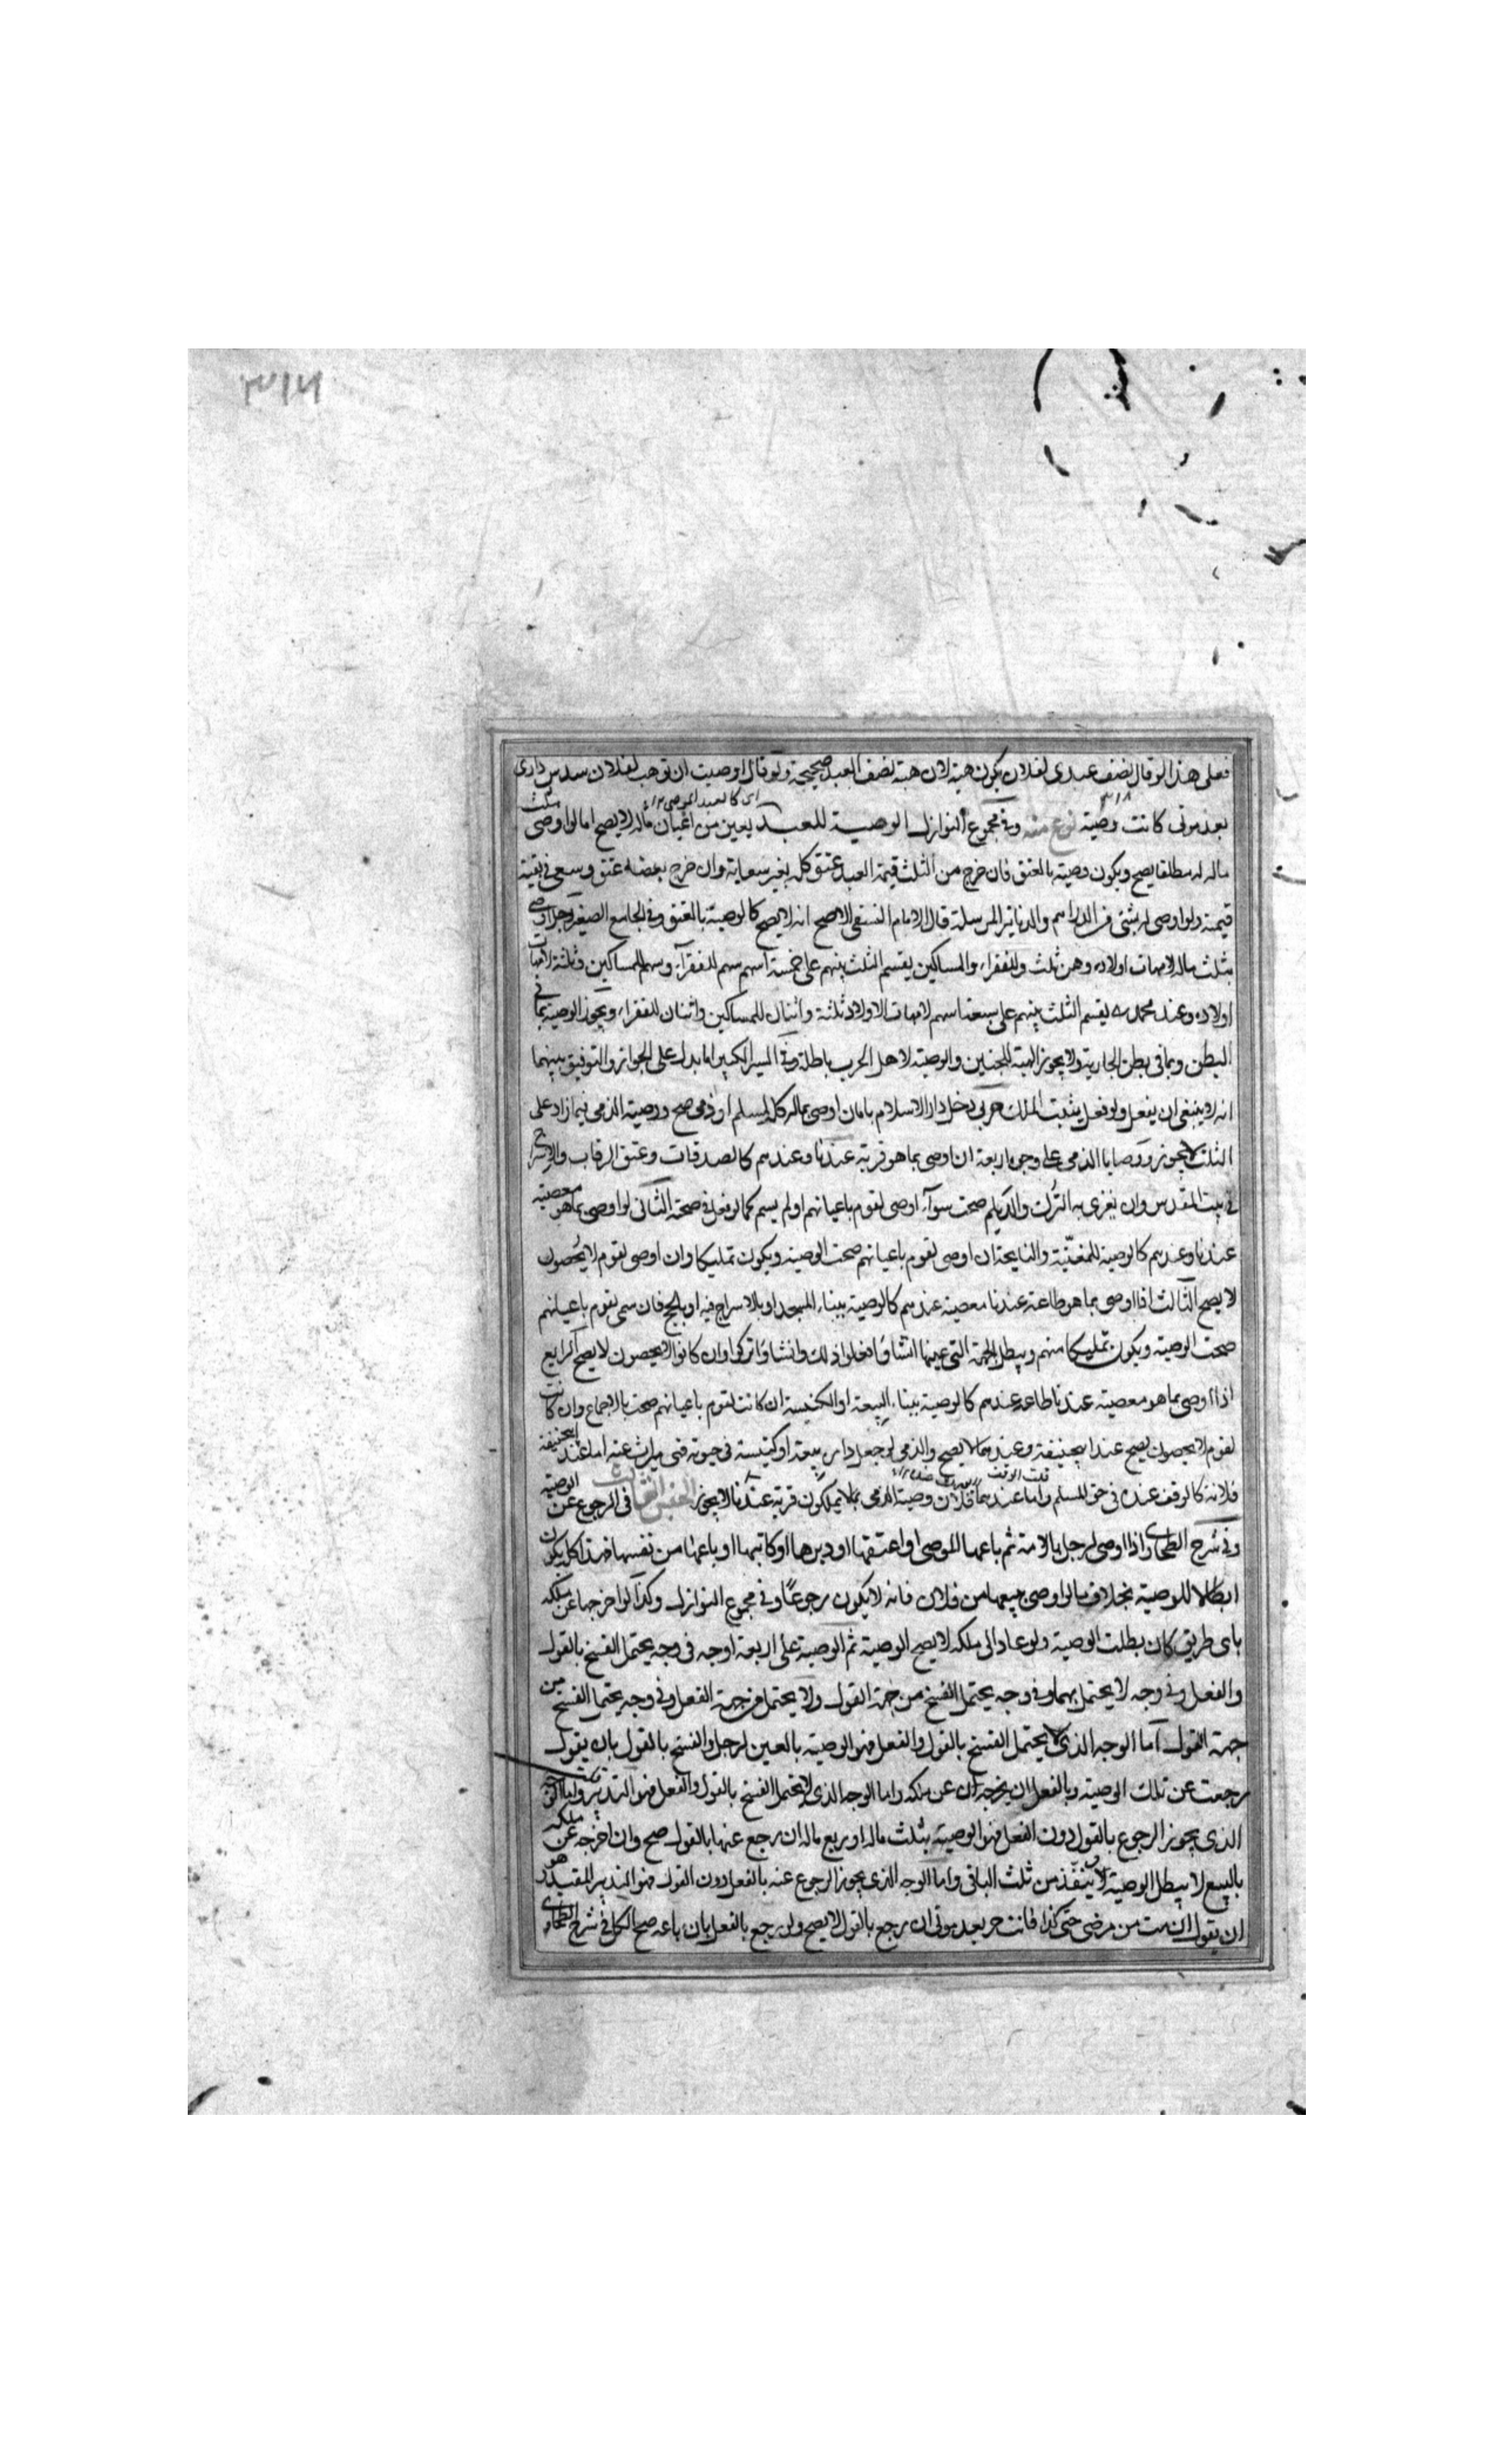 فعلى هذا لو قال نصف عبدى لفلان يكون هبة لان هبة نصف العبد صحيحة ولو قال اوصيت ان توهب لفلان سدس دارى
بعد موتى كانت وصية نوع منه وفى مجموع النوازل الوصية للعبد بعين من اعيان ماله لا يصح اما لو اوصى بثلث
ماله له مطلقا يصح ويكون وصية بالعتق فان خرج من الثلث قيمة العبد عتق كله بغير سعاية وان خرج بعضه عتق وسعى فى بقية
قيمته ولو اوصى له بشئ من الدراهم والدنانير المرسلة قال الامام النسفى الاصح انه لا يصح كالوصية بالعتق وفى الجامع الصغير رجل اوصى
بثلث ماله لامهات اولاده وهن ثلث وللفقراء والمساكين يقسم الثلث بينهم على خمسة اسهم سهم للفقراء وسهم للمساكين وثلثة لامهات
اولاده وعند محمد يقسم الثلث بينهم على سبعة اسهم لامهات الاولاد ثلثة واثنان للمساكين واثنان للفقراء ويجوز الوصية بما فى
البطن وبما فى بطن الجارية ولا يجوز الهبة للجنين والوصية لاهل الحرب باطلة وفى السير الكبير ما يدل على الجواز والتوفيق بينهما
انه لا ينبغى ان يفعل ولو فعل يثبت الملك حربى دخل دار الاسلام بامان اوصى بماله كله لمسلم او ذمى صح ووصية الذمى فيما زاد على
الثلث لا يجوز ووصايا الذمى على وجوه اربعة ان اوصى بما هو قربة عندنا وعندهم كالصدقات وعتق الرقاب والاسراج
فى بيت المقدس وان يغزى به الترك والديلم صحت سواء اوصى لقوم باعيانهم او لم يسم كما لو فعل فى صحته الثانى لو اوصى بما هو معصية
عندنا وعندهم كالوصية للمغنية والنايحة ان اوصى لقوم باعيانهم صحت الوصية ويكون تمليكا وان اوصى لقوم لا يحصون
لا يصح الثالث اذا اوصى بما هو طاعة عندنا معصية عندهم كالوصية ببناء المسجد او بالاسراج فيه او بالحج فان سمى لقوم باعيانهم
صحت الوصية ويكون تمليكا منهم ويبطل الجهة التى عينها ان شاؤا فعلوا ذلك وان شاؤا تركوا وان كانوا لا يحصون لا يصح الرابع
اذا اوصى بما هو معصية عندنا طاعة عندهم كالوصية ببناء البيعة او الكنيسة ان كانت لقوم باعيانهم صحت بالاجماع وان كانت
لقوم لا يحصون يصح عند ابيحنيفة وعندهما لا يصح والذمى لو جعل داره بيعة او كنيسة فى حيوته فهى ميراث عنه اما عند ابيحنيفة
فلانه كالوقف عنده فى حق المسلم واما عندهما فلان وصية الذمى بما لا يكون قربة عندنا لا يجوز الفصل الثالث فى الرجوع عن الوصية
وفى شرح الطحاوى واذا اوصى لرجل بالامة ثم باعها الموصى او اعتقها او دبرها او كاتبها او باعها من نفسها فهذا كله يكون
ابطالا للوصية بخلاف ما لو اوصى ببيعها من فلان فانه لا يكون رجوعا وفى مجموع النوازل وكذا لو اخرجها عن ملكه
باى طريق كان بطلت الوصية ولو عاد الى ملكه لا يصح الوصية ثم الوصية على اربعة اوجه فى وجه يحتمل الفسخ بالقول
والفعل وفى وجه لا يحتمل بهما وفى وجه يحتمل الفسخ من جهة القول ولا يحتمل من جهة الفعل وفى وجه يحتمل الفسخ من
جهة القول اما الوجه الذى لا يحتمل الفسخ بالقول والفعل فهو الوصية بالعين لرجل والفسخ بالقول بان يقول
رجعت عن تلك الوصية وبالفعل ان يخرجه عن ملكه واما الوجه الذى لا يحتمل الفسخ بالقول والفعل فهو التدبير واما الوجه
الذى يجوز الرجوع بالقول دون الفعل فهو الوصية بثلث ماله او ربع ماله ان رجع عنها بالقول صح وان اخرجه عن ملكه
بالبيع لا يبطل الوصية وينفذ من ثلث الباقى واما الوجه الذى يجوز الرجوع عنه بالفعل دون القول فهو التدبير المقيد هو
ان يقول ان مت من مرضى حتى كذا فانت حر بعد موتى ان رجع بالقول لا يصح ولو رجع بالفعل بان باعه صح الكل فى شرح الطحاوى